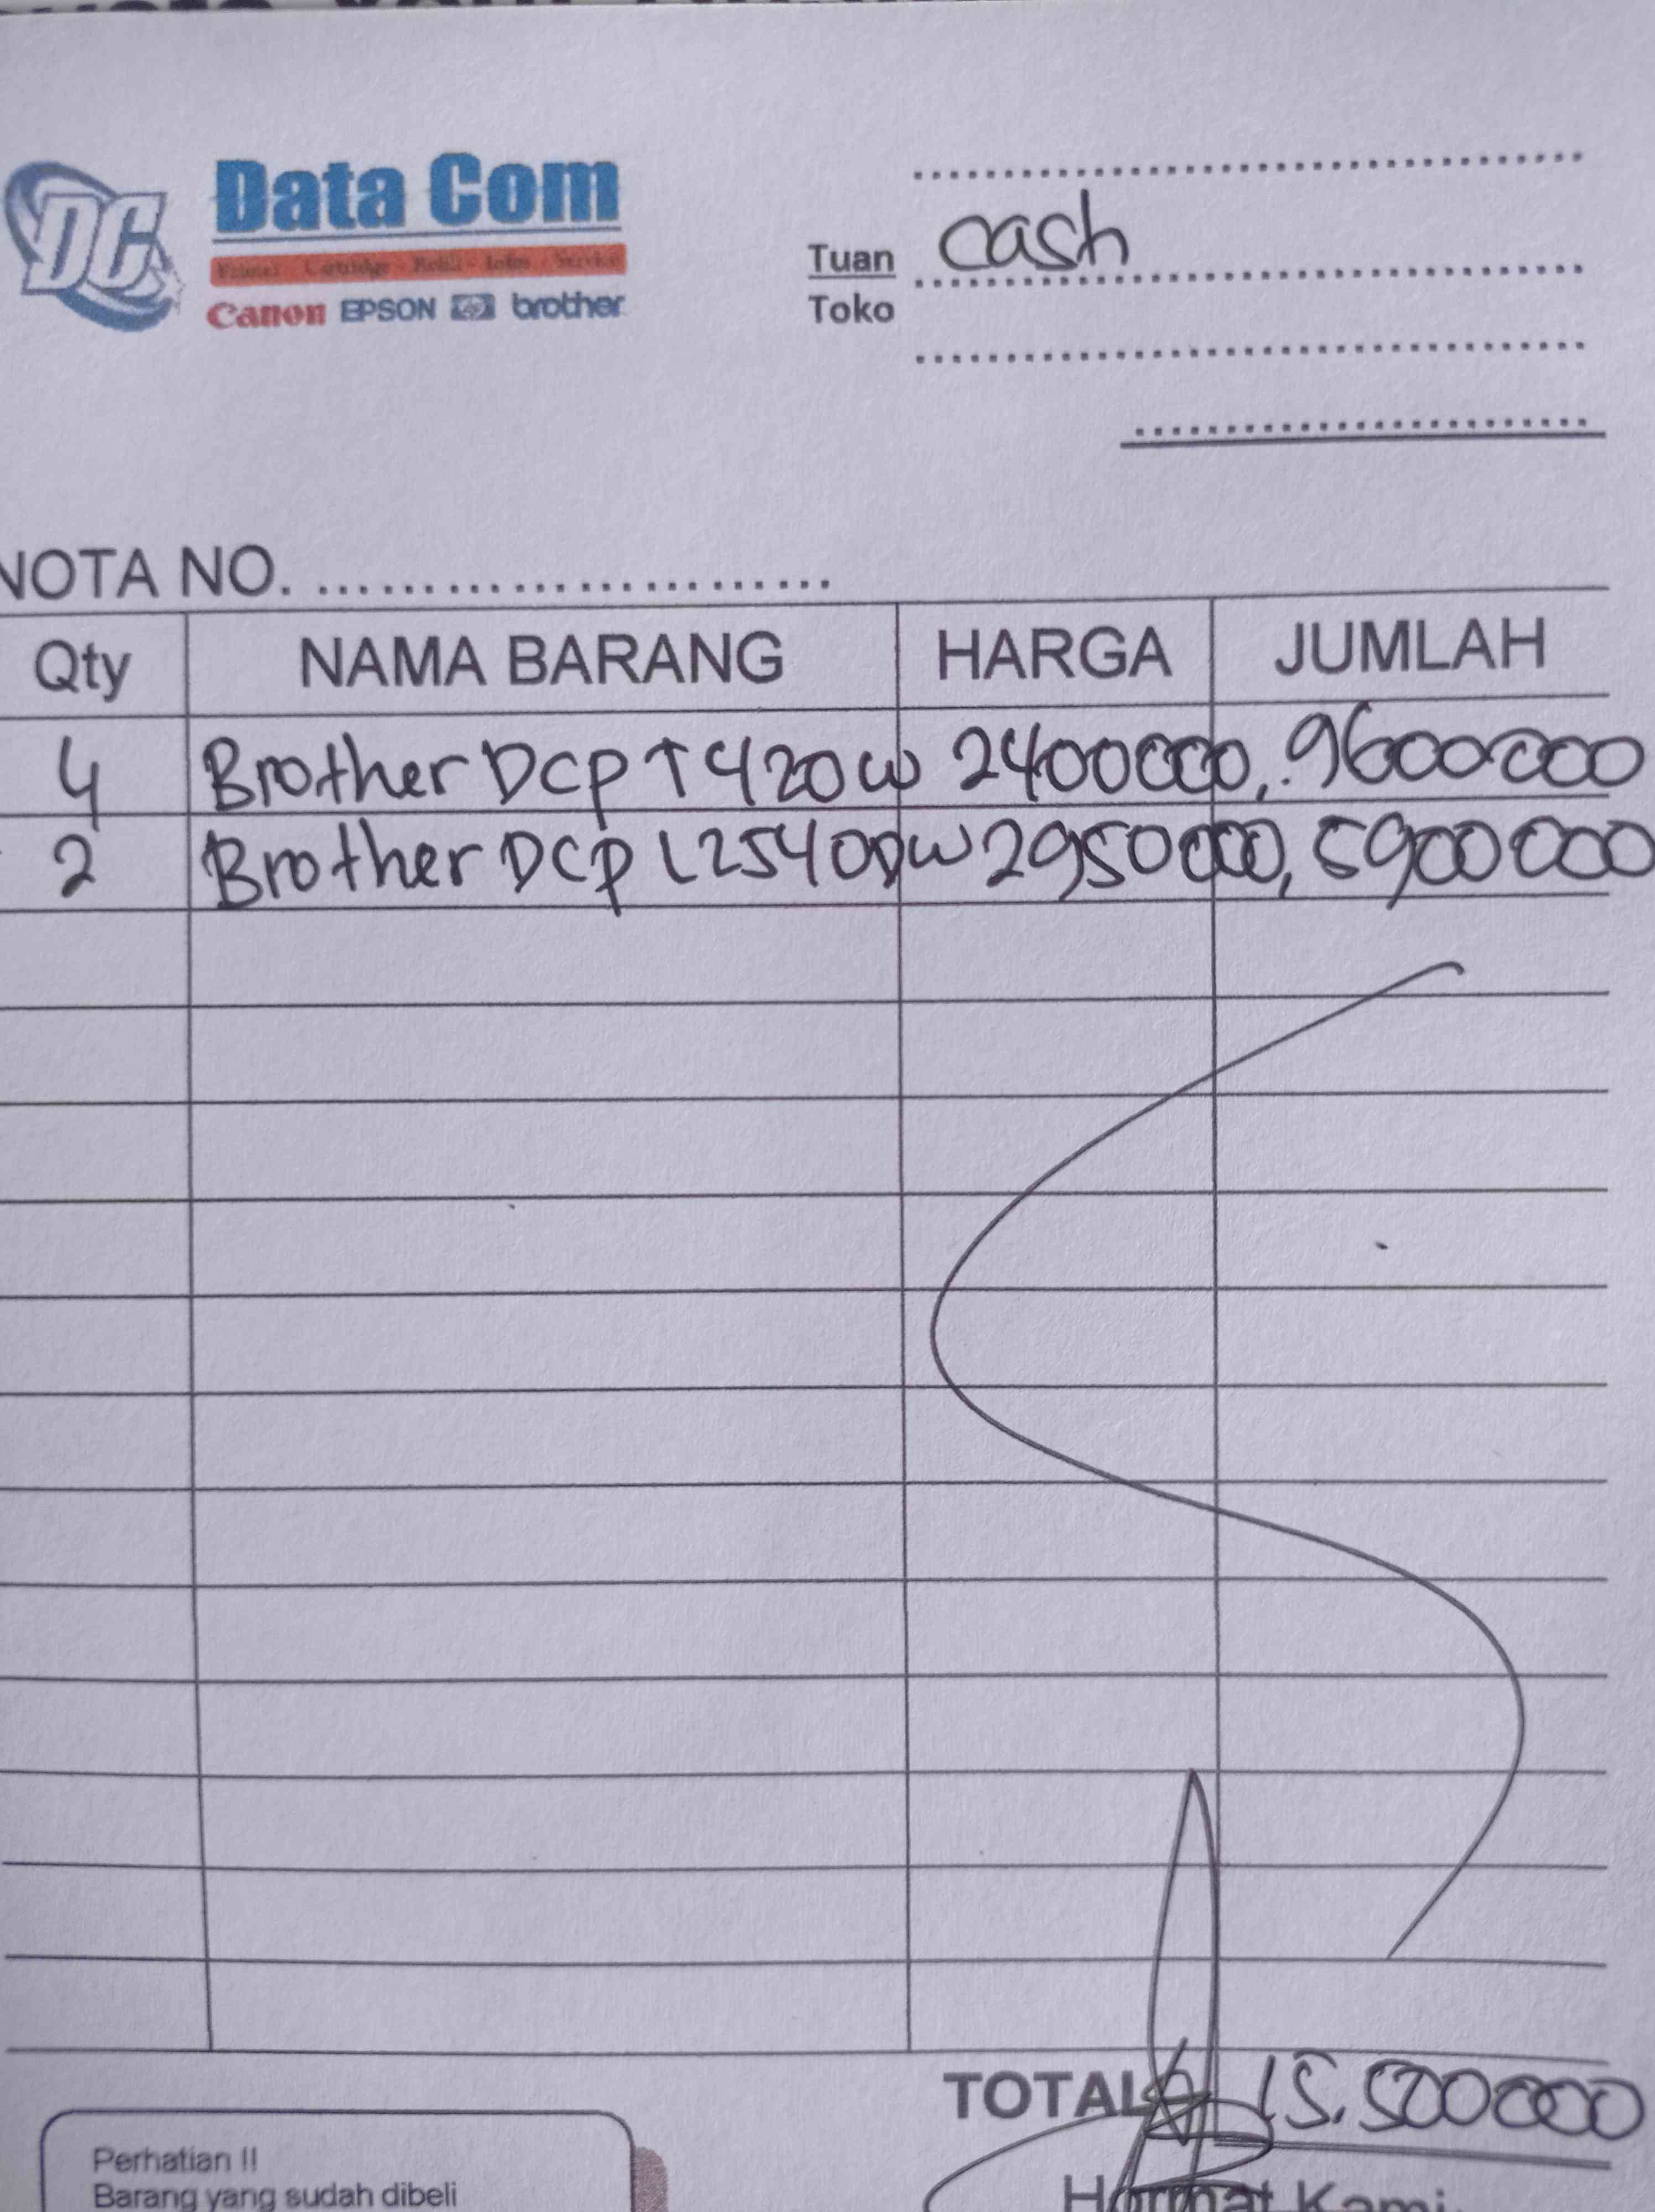 Data Com
Printer - Cartridge - Refill - Infus - Service
Canon EPSON hp brother
Tuan cash
Toko
NOTA NO. ........................
Qty NAMA BARANG HARGA JUMLAH
4 Brother DCP T420W 2400000, 9600000
2 Brother DCP L2540DW 2950000, 5900000
TOTAL 15.500000
Perhatian !!
Barang yang sudah dibeli
Hormat Kami